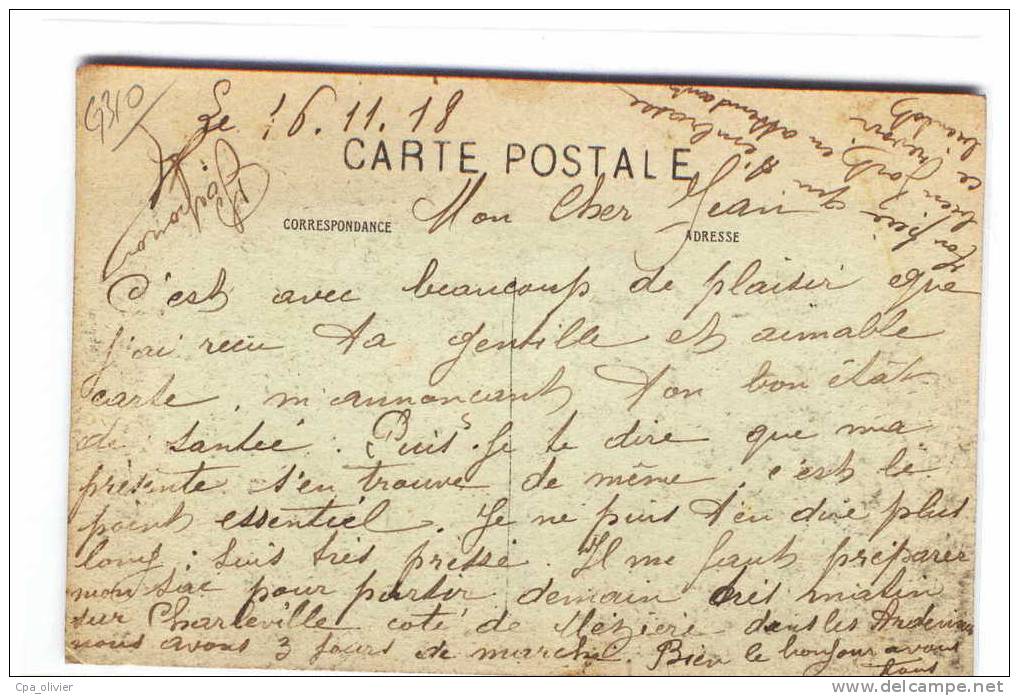 G310
Le 16.11.18
CARTE POSTALE
CORRESPONDANCE
ADRESSE
Mon Cher Jean
C'est avec beaucoup de plaisir que
j'ai reçu ta gentille et aimable
carte, m'annonçant ton bon état
de santée. Puis Je te dire que ma
présente s'en trouve de même, c'est le
point essentiel. Je ne puis t'en dire plus
long; suis très pressé. Il me faut préparer
mon sac pour partir demain très matin
sur Charleville coté de Mezière dans les Ardennes
nous avons 3 jours de marche. Bien le bonjour a vous
tous
Ton qui t'embrasse
bien fort en attendant
ce revoir
bientôt
Cpa_olivier
delcampe.net